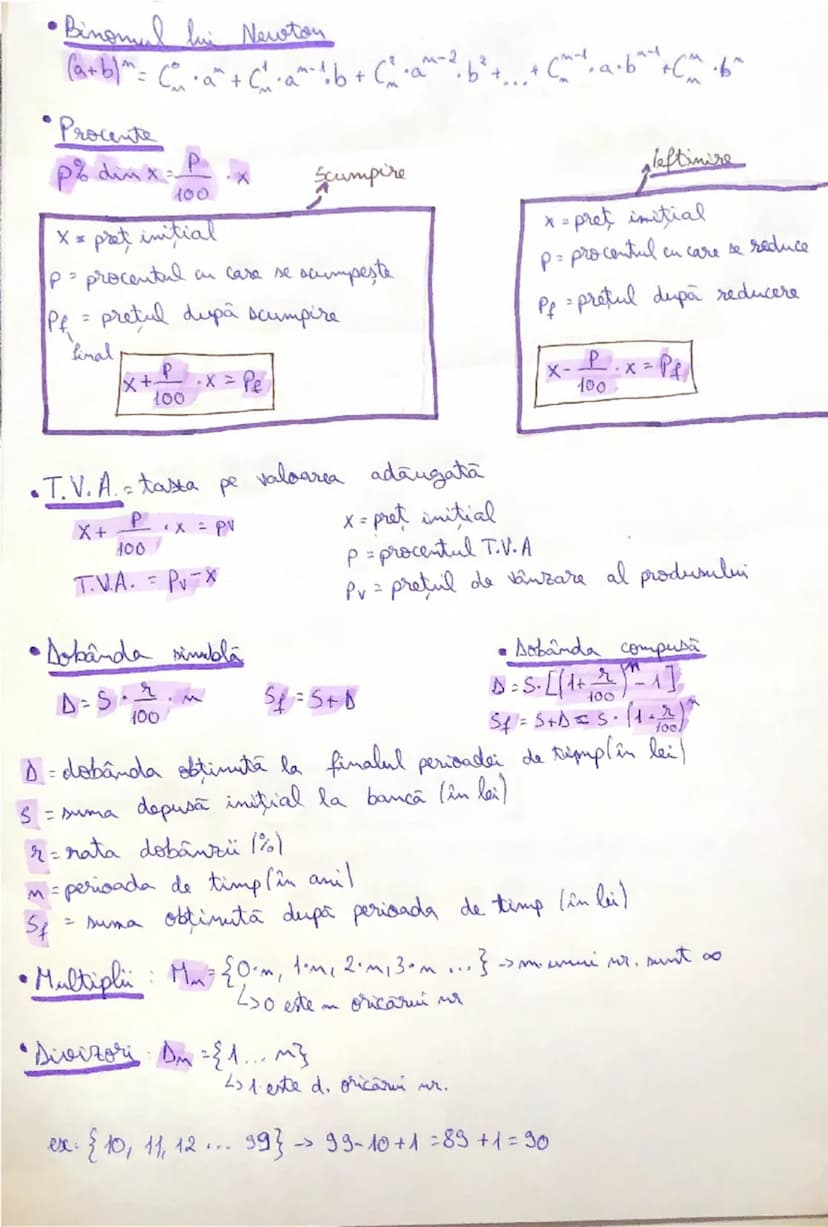 • Binomul lui Newton
(a+b)ⁿ = Cₙ⁰ · aⁿ + Cₙ¹ · aⁿ⁻¹ · b + Cₙ² · aⁿ⁻² · b² + ... + Cₙⁿ⁻¹ · a · bⁿ⁻¹ + Cₙⁿ · bⁿ
• Procente
p% din x = p/100 · x
Scumpire
x = preț inițial
p = procentul cu care se scumpește
Pf = prețul după scumpire
final
x + p/100 · x = Pf
Ieftinire
x = preț inițial
p = procentul cu care se reduce
Pf = prețul după reducere
x - p/100 · x = Pf
• T.V.A. = taxa pe valoarea adăugată
x + p/100 · x = Pv
T.V.A. = Pv - x
x = preț inițial
p = procentul T.V.A
Pv = prețul de vânzare al produsului
• Dobânda simplă
D = S · r/100 · n
Sf = S + D
• Dobânda compusă
D = S · [(1 + r/100)ⁿ - 1]
Sf = S + D = S · (1 + r/100)ⁿ
D = dobânda obținută la finalul perioadei de timp (în lei)
S = suma depusă inițial la bancă (în lei)
r = rata dobânzii (%)
n = perioada de timp (în ani)
Sf = suma obținută după perioada de timp (în lei)
• Multiplii : Mₙ = {0·n, 1·n, 2·n, 3·n ...} → m unui nr. sunt ∞
↳ 0 este m oricărui nr
• Divizori Dₙ = {1 ... n}
↳ 1 este d. oricărui nr.
ex: {10, 11, 12 ... 99} → 99-10+1 = 89+1 = 90